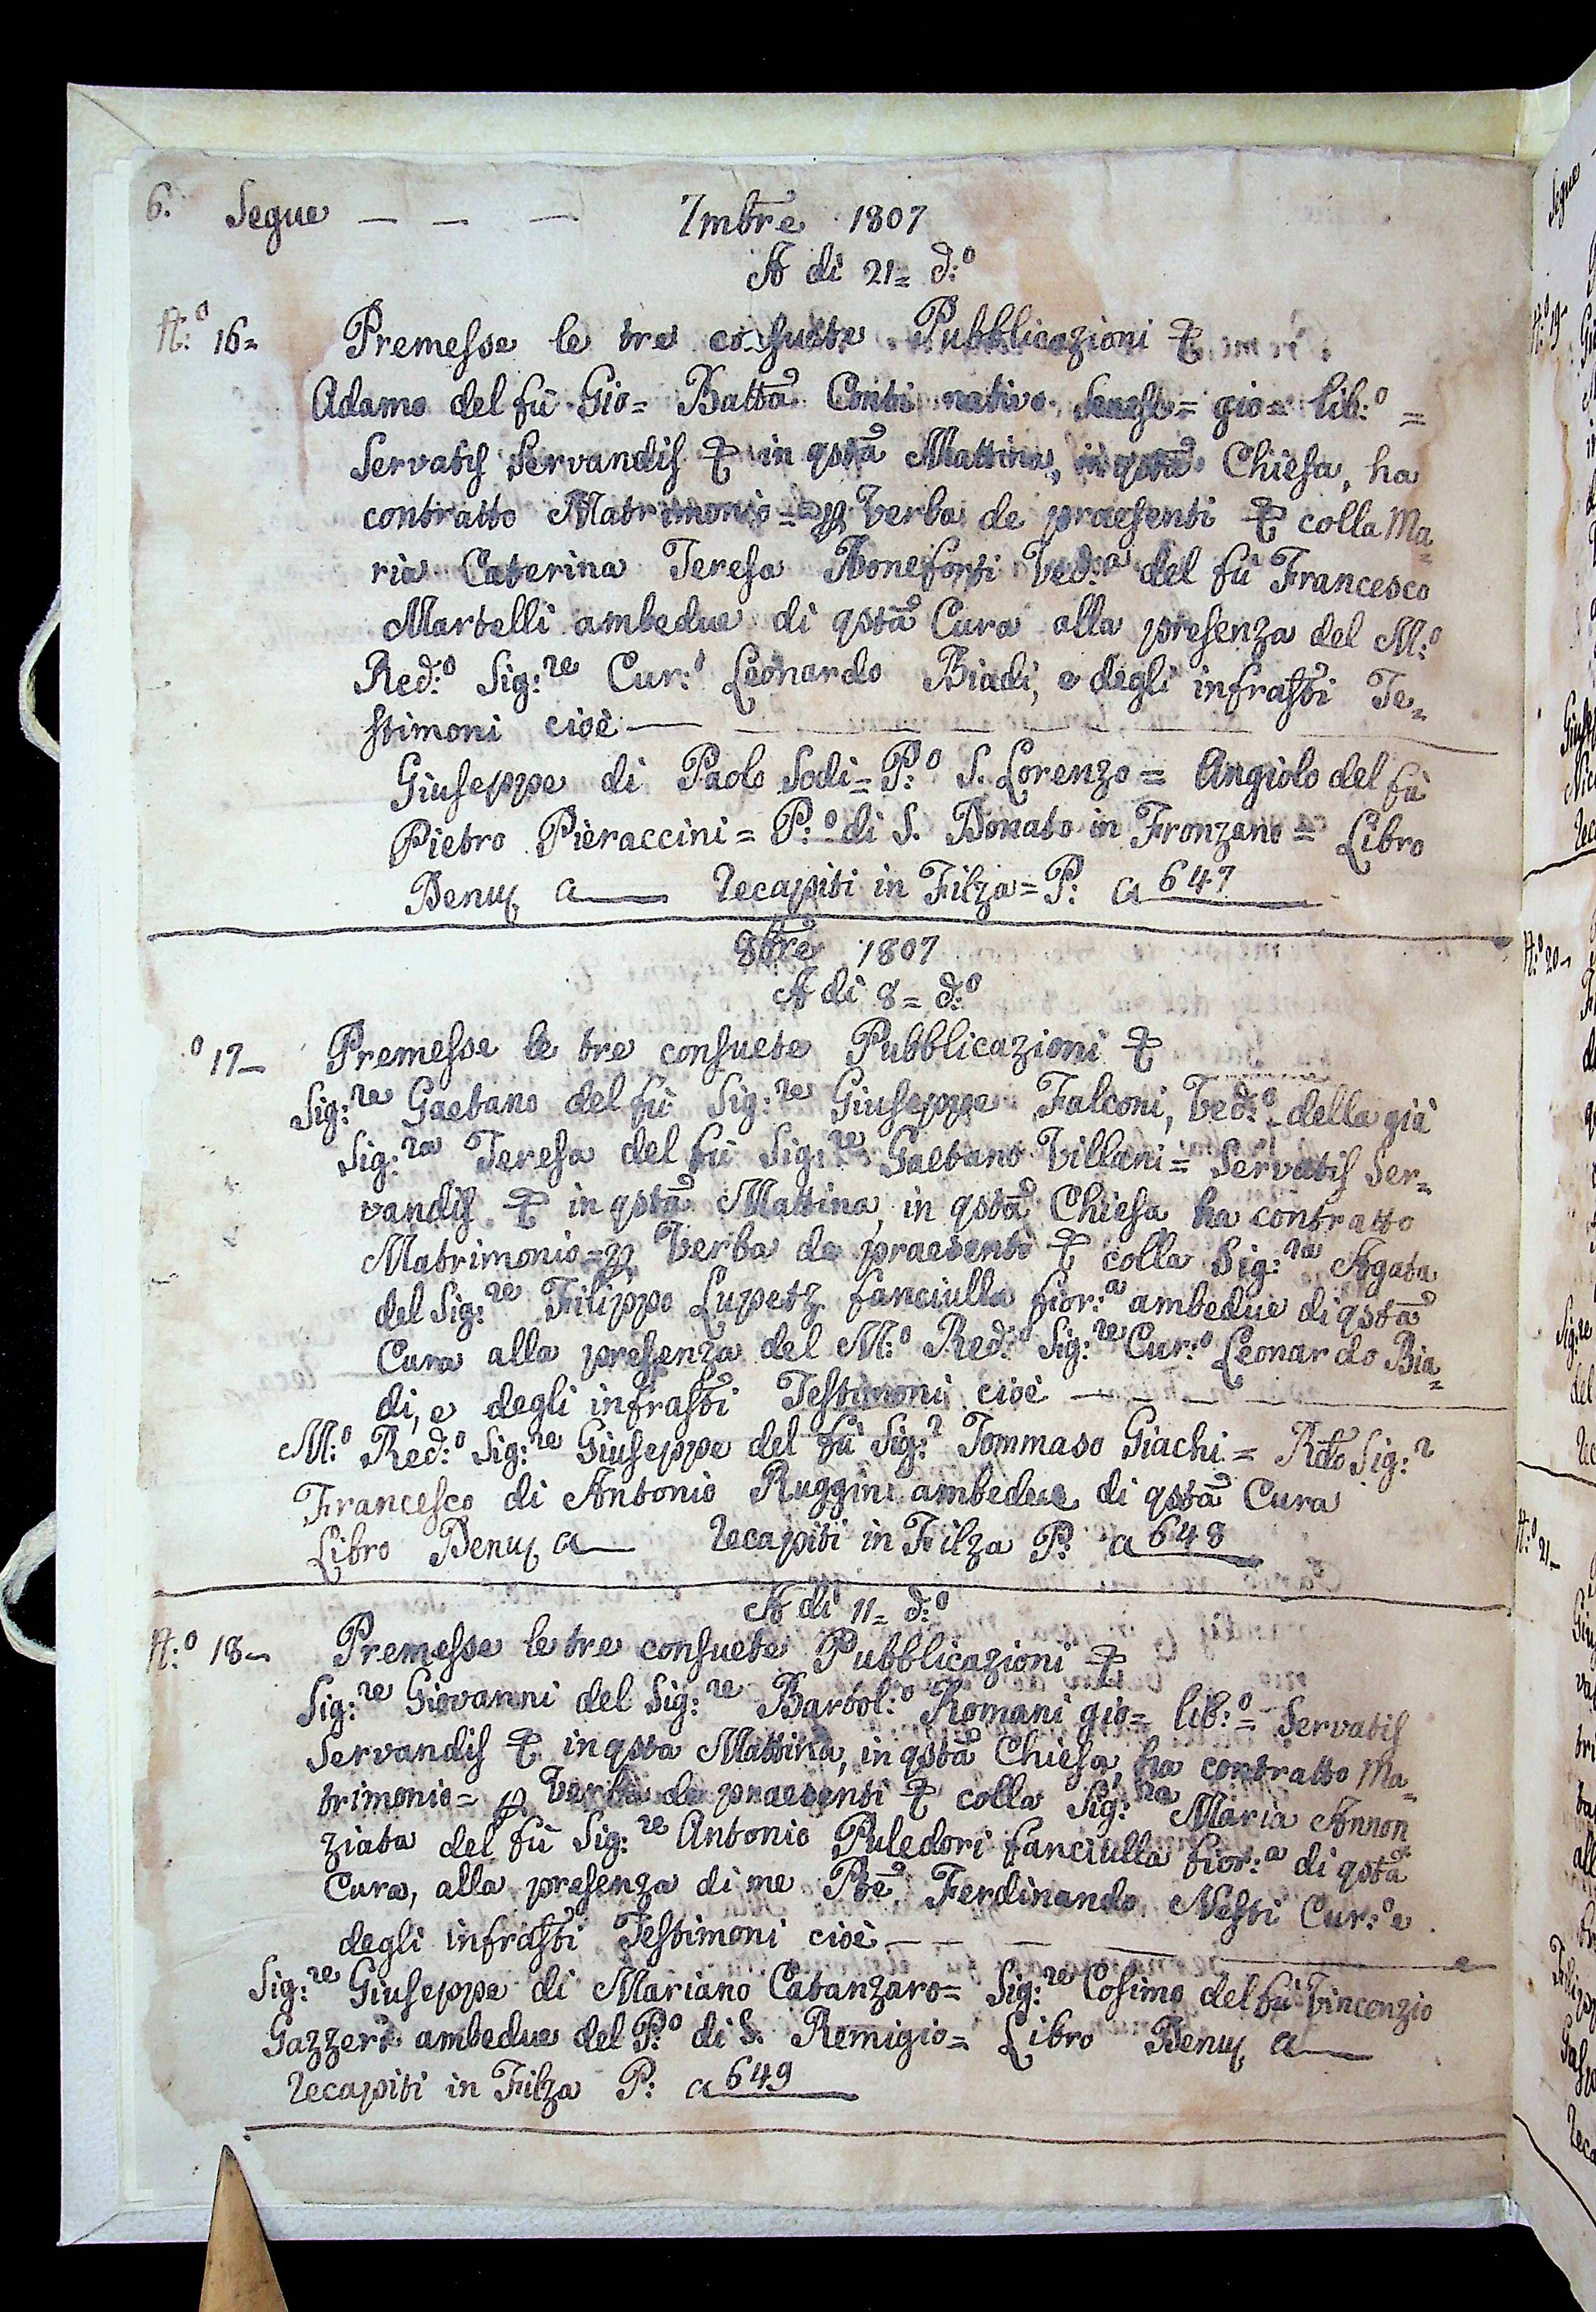 6. Segue — — — 7mbre 1807
A di 21= d:o
N:o 16= Premesse le tre consuete Pubblicazioni &
Adamo del fù Gio= Batta Conti nativo Senese= gio= lib:o =
Servatis Servandis & in qsta Mattina, in qsta Chiesa, ha
contratto Matrimonio= p Verba de praesenti & colla Ma=
ria Caterina Teresa Boneforti Ved:a del fù Francesco
Martelli ambedue di qsta Cura alla presenza del M:o
Red:o Sig:re Cur:o Leonardo Biadi, e degli infrasti Te=
stimoni cioè —
Giuseppe di Paolo Sodi= P:o S. Lorenzo= Angiolo del fù
Pietro Pieraccini= P:o di S. Donato in Fronzano= Libro
Denuz a— recapiti in Filza= P: a 647
8bre 1807
A di 8= d:o
o 17— Premesse le tre consuete Pubblicazioni &
Sig:re Gaetano del fù Sig:re Giuseppe Falconi, Ved:o della già
Sig:ra Teresa del fù Sig:re Gaetano Villani= Servatis Ser=
vandis & in qsta Mattina, in qsta Chiesa ha contratto
Matrimonio= p Verba de praesenti & colla Sig:ra Agata
del Sig:re Filippo Lupetz fanciulla fior:a ambedue di qsta
Cura alla presenza del M:o Red:o Sig:re Cur:o Leonardo Bia=
di, e degli infrasti Testimoni cioè — — — —
M:o Red:o Sig:re Giuseppe del fù Sig:r Tommaso Giachi= Rdo Sig:r
Francesco di Antonio Ruggini ambedue di qsta Cura
Libro Denuz a— recapiti in Filza P: a 648
A di 11= d:o
N:o 18— Premesse le tre consuete Pubblicazioni &
Sig:re Giovanni del Sig:re Bartol:o Romani gio= lib:o= Servatis
Servandis & in qsta Mattina, in qsta Chiesa, ha contratto Ma=
trimonio= p Verba de praesenti & colla Sig:ra Maria Annon
ziata del fù Sig:re Antonio Puledori fanciulla fior:a di qsta
Cura, alla presenza di me Pre Ferdinando Nesti Cur:o e
degli infrasti Testimoni cioè — — —
Sig:re Giuseppe di Mariano Catanzaro= Sig:re Cosimo del fù Vincenzio
Gazzeri ambedue del P:o di S. Remigio= Libro Denuz a—
recapiti in Filza P: a 649